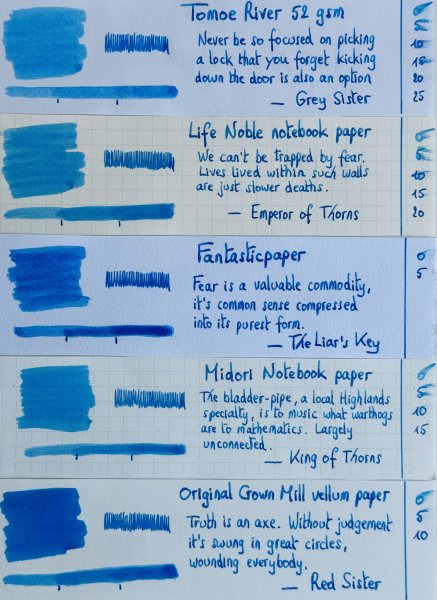 Tomoe River 52 gsm
Never be so focused on picking
a lock that you forget kicking
down the door is also an option
— Grey Sister
0
5
10
15
20
25
Life Noble notebook paper
We can't be trapped by fear.
Lives lived within such walls
are just slower deaths.
— Emperor of Thorns
0
5
10
15
20
Fantasticpaper
Fear is a valuable commodity,
it's common sense compressed
into its purest form.
— The Liar's Key
0
5
Midori Notebook paper
The bladder-pipe, a local Highlands
specialty, is to music what warthogs
are to mathematics. Largely
unconnected.
— King of Thorns
0
5
10
15
Original Crown Mill vellum paper
Truth is an axe. Without judgement
it's swung in great circles,
wounding everybody.
— Red Sister
0
5
10